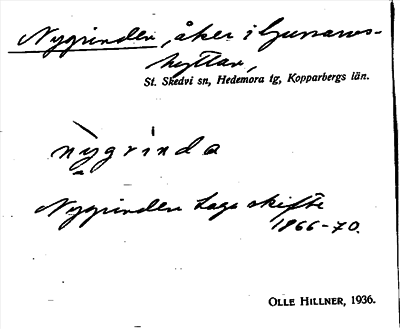 Nygrinden, åker i Gussarvs-
hyttan,
St. Skedvi sn, Hedemora tg, Kopparbergs län.
nỳgrìnda
Nygrinden Laga skifte
1866-70.
OLLE HILLNER, 1936.